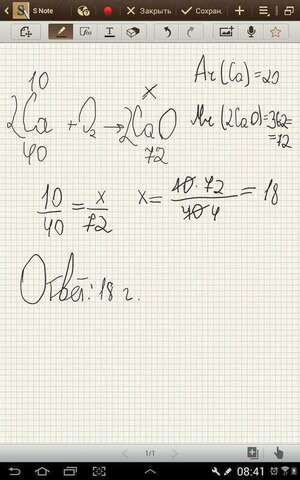 S Note
Закрыть
Сохран.
10
x
Ar(Ca)=20
2Ca + O₂ → 2CaO
40
72
Mr(2CaO)=36·2=
=72
10/40 = x/72
x = 10·72/40 4 = 18
Ответ: 18 г.
1/1
08:41